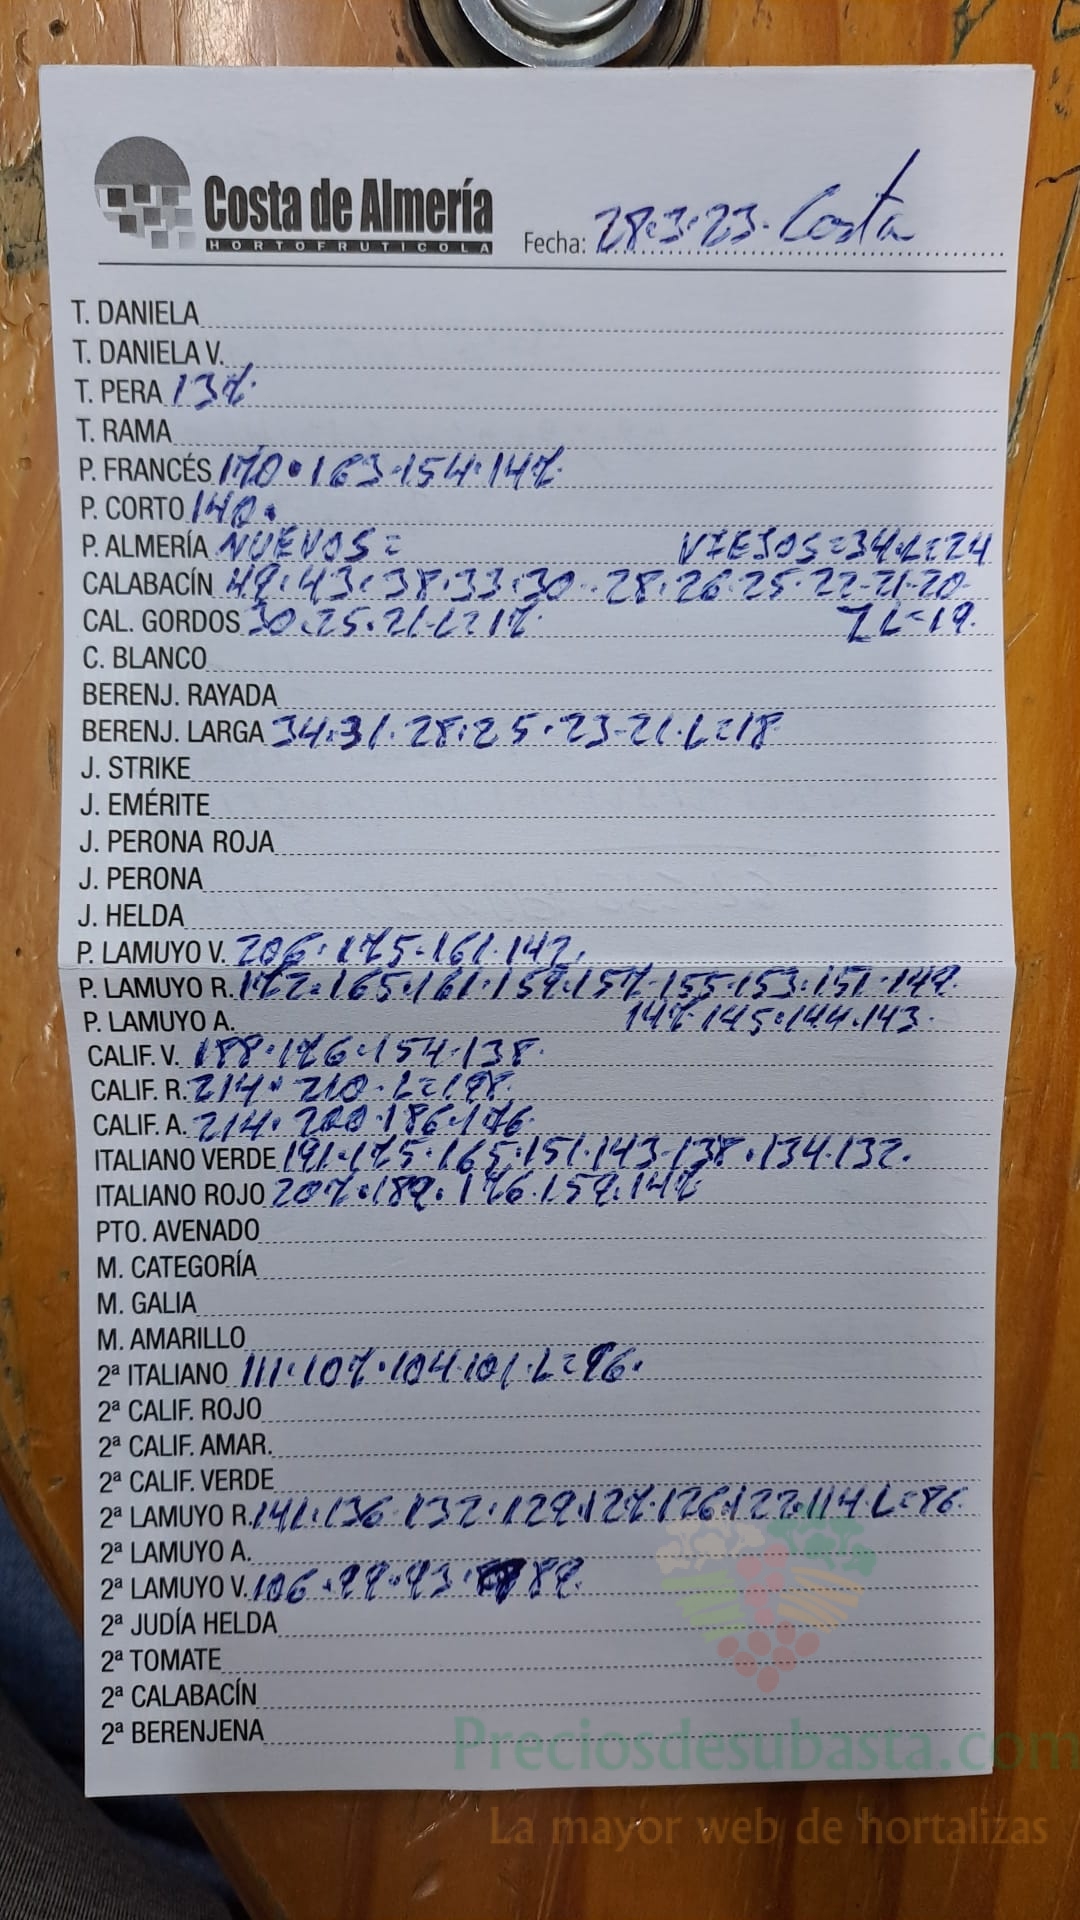 Costa de Almería
HORTOFRUTICOLA
Fecha: 28.3.23. Costa
T. DANIELA
T. DANIELA V.
T. PERA 137.
T. RAMA
P. FRANCÉS 170.163.154.147.
P. CORTO 140.
P. ALMERÍA NUEVOS= VIEJOS=34.L=24
CALABACÍN 49.43.38.33.30..28.26.25.22-21-20
CAL. GORDOS 30.25.21.L=17. LL=19.
C. BLANCO
BERENJ. RAYADA
BERENJ. LARGA 34.31.28.25.23-21.L=18
J. STRIKE
J. EMÉRITE
J. PERONA ROJA
J. PERONA
J. HELDA
P. LAMUYO V. 206.175.161.142.
P. LAMUYO R. 172.165.161.159.157.155.153.151.149.
P. LAMUYO A. 147.145.144.143.
CALIF. V. 188.176.154.138.
CALIF. R. 214.210.L=198.
CALIF. A. 214.200.186.176.
ITALIANO VERDE 191.175.165.151.143.138.134.132.
ITALIANO ROJO 207.189.176.159.147
PTO. AVENADO
M. CATEGORÍA
M. GALIA
M. AMARILLO
2ª ITALIANO 111.107.104.101.L=96.
2ª CALIF. ROJO
2ª CALIF. AMAR.
2ª CALIF. VERDE
2ª LAMUYO R. 141.136.132.129.127.126.122.114.L=86.
2ª LAMUYO A.
2ª LAMUYO V. 106.99.93.89.
2ª JUDÍA HELDA
2ª TOMATE
2ª CALABACÍN
2ª BERENJENA
Preciosdesubasta.com
La mayor web de hortalizas